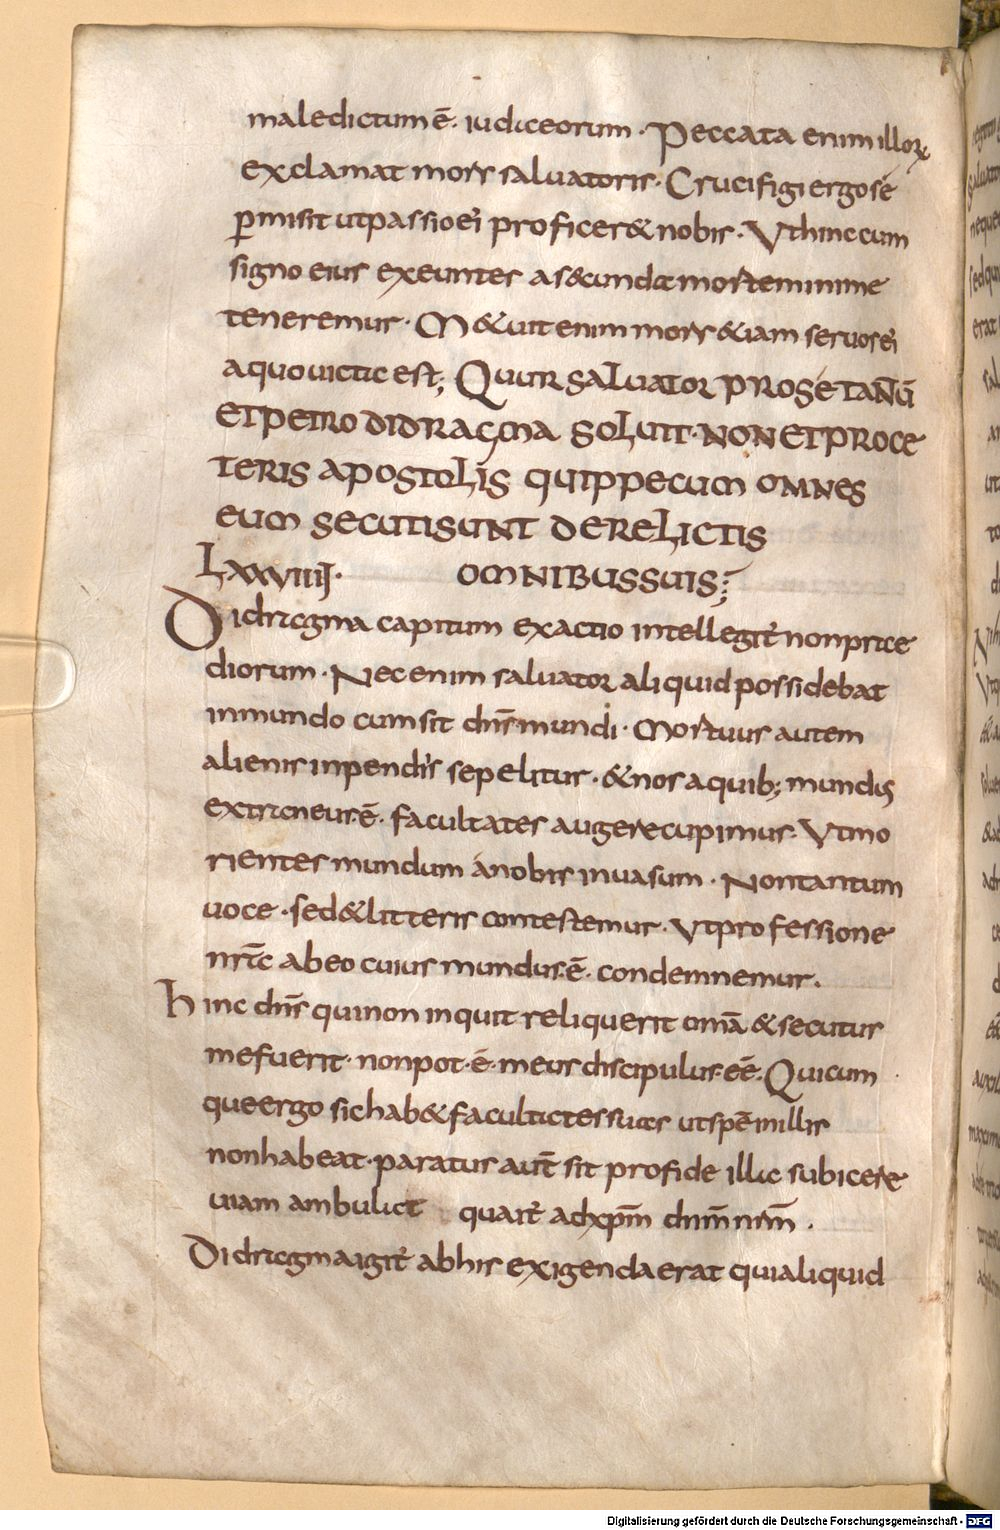 maledictum ē· iudiceorum · Peccata enim illoꝝ
exclamat mors salvatoris· Crucifigi ergo sé
ꝑmisit ut passio ei proficer& nobis · Vt hinc cum
signo eius exeuntes a s&cunda morte minime
teneremur · M&uit enim mors &iam servos ei
a quo victa est; QUUR SALUATOR PRO SE TANTŪ
ET PETRO DIDRAGMA SOLUIT · NON ET PRO CE
TERIS APOSTOLIS QUIPPE CUM OMNES
EUM SECUTI SUNT DERELICTIS
LXXVIIII · OMNIBUS SUIS;
Didragma capitum exactio intellegit̄ non prae
diorum · Nec enim salvator aliquid possidebat
in mundo cum sit dn̄s mundi · Mortuus autem
alienis inpendiis sepelitur · & nos a quib; mundus
extraneus ē· facultates augere cupimus· Vt mo
rientes mundum a nobis invasum · Non tantum
voce · sed & litteris contestemur · Vt professione
nr̄a ab eo cuius mundus ē· condemnemur .
Hinc dn̄s qui non inquit reliquerit om̄a & secutus
me fuerit · non pot· ē· meus discipulus eē· Quicum
que ergo sic hab& facultates suas ut spē in illis
non habeat · paratus aut̄ sit pro fide illic subicere
viam ambulat quaer̄ ad xp̄m dn̄m nr̄m .
Didragma igit̄ ab his exigenda erat qui aliquid
Digitalisierung gefördert durch die Deutsche Forschungsgemeinschaft - DFG